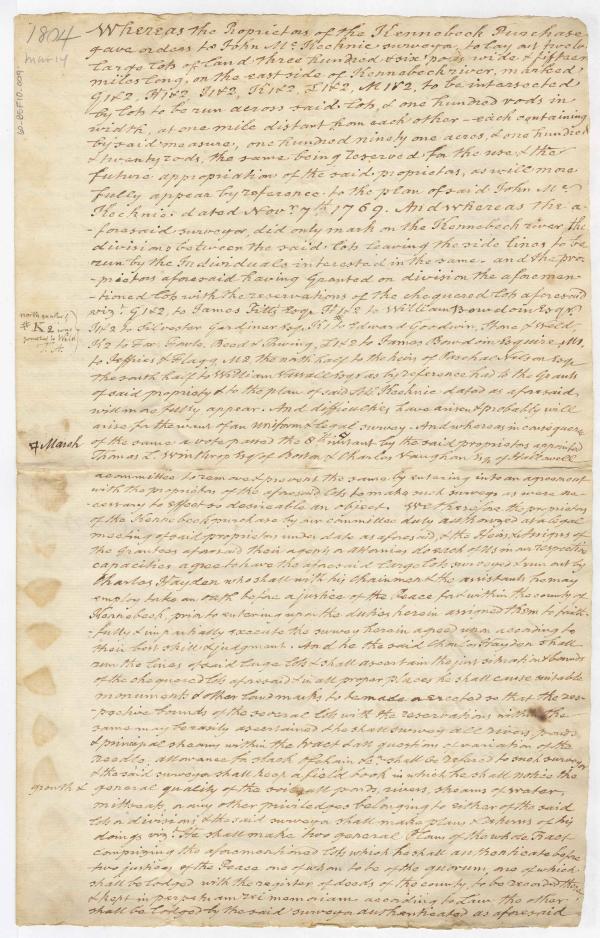 1804
Mar 14
60-BSF10.009
Whereas the Proprietors of the Kennebeck Purchase
gave orders to John Mc Kechnie surveyor to lay out twelve
large lots of land three hundred & six poles wide & fifteen
miles long, on the east side of Kennebeck river, marked
G1&2, H1&2 I1&2, K1&2, L1&2, M1&2, to be intersected
by lots to be run across said lots, & one hundred rods in
width, at one mile distant from each other - each containing
by said measure, one hundred ninety one acres, & one hundred
& twenty rods, the same being reserved for the use & the
future appropriation of the said proprietors, as will more
fully appear by reference to the plan of said John Mc
Kechnie dated Novr. 7th 1769. And whereas the a-
-foresaid surveyor, did only mark on the Kennebeck river, the
divisions between the said lots leaving the side lines to be
run by the Individuals interested in the same - and the pro-
-prietors aforesaid having Granted on division the aforemen-
-tioned lots with the reservations of the chequered lots aforesaid
viz. G1&2, to James Pitts Esqr. H1&2 to William Bowdoin Esqr.
I1&2 to Silvester Gardiner Esqr. K1 to Edward Goodwin, Stone & Weld,
K2 to Fox, Fowle, Reed & Thwing, L1&2 to James Bowdoin Esquire, M1
to Jeffries & Flagg, M2 the north half to the heirs of Paschal Nelson Esqr.
the south half to William Vassall Esqr as by reference had to the Grants
of said propriety & to the plan of said Mc Kechnie dated as aforesaid
will more fully appear. And difficulties have arisen & probably will
arise for the want of an uniform & legal survey. And whereas in consequence
of the same a vote passed the 8th instant by the said proprietors appointed
4 March
Thomas L. Winthrop Esqr of Boston & Charles Vaughan Esq. of Hallowell
a committee to remove & prevent the same by entering into an agreement
with the proprietors of the aforesaid lots to make such surveys as were ne-
cessary to effect so desireable an object. We therefore the proprietors
of the Kennebeck purchase by our committee duly authorized at a legal
meeting of said proprietors under date as aforesaid, & the Heirs & Assigns of
the Grantees aforesaid their agents or attornies do each of us in our respective
capacities agree to have the aforesaid large lots surveyed & run out by
Charles Hayden who shall with his Chainmen & the assistants he may
employ take an oath before a justice of the Peace for & within the county of
Kennebeck, prior to entering upon the duties herein assigned them to faith-
-fully & impartially execute the survey herein agreed upon according to
their best skill & judgment. And he the said Charles Hayden shall
run the lines of said large lots & shall ascertain the just situation & bounds
of the chequered lots aforesaid & in all proper places he shall cause suitable
monuments & other land marks to be made or erected so that the res-
-pective bounds of the several lots with the reservations within the
same may be easily ascertained & he shall survey all rivers, ponds
& principal streams within the tract & all questions of variation of the
needle, allowance for slack of chain &c shall be refered to such surveyor
& the said surveyor shall keep a field book in which he shall notice the
growth &
general quality of the soil, all ponds, rivers, streams of water,
millseats, or any other priviledges belonging to either of the said
lots or divisions & the said surveyor shall make plans & returns of his
doings viz. He shall make two general Plans of the whole tract
comprizing the aforementioned lots which he shall authenticate before
two justices of the Peace one of whom to be of the quorum, one of which
shall be lodged with the register of deeds of the county, to be recorded there
& kept in perpetuam rei memoriam according to Law, the other
shall be lodged by the said surveyor authenticated as aforesaid